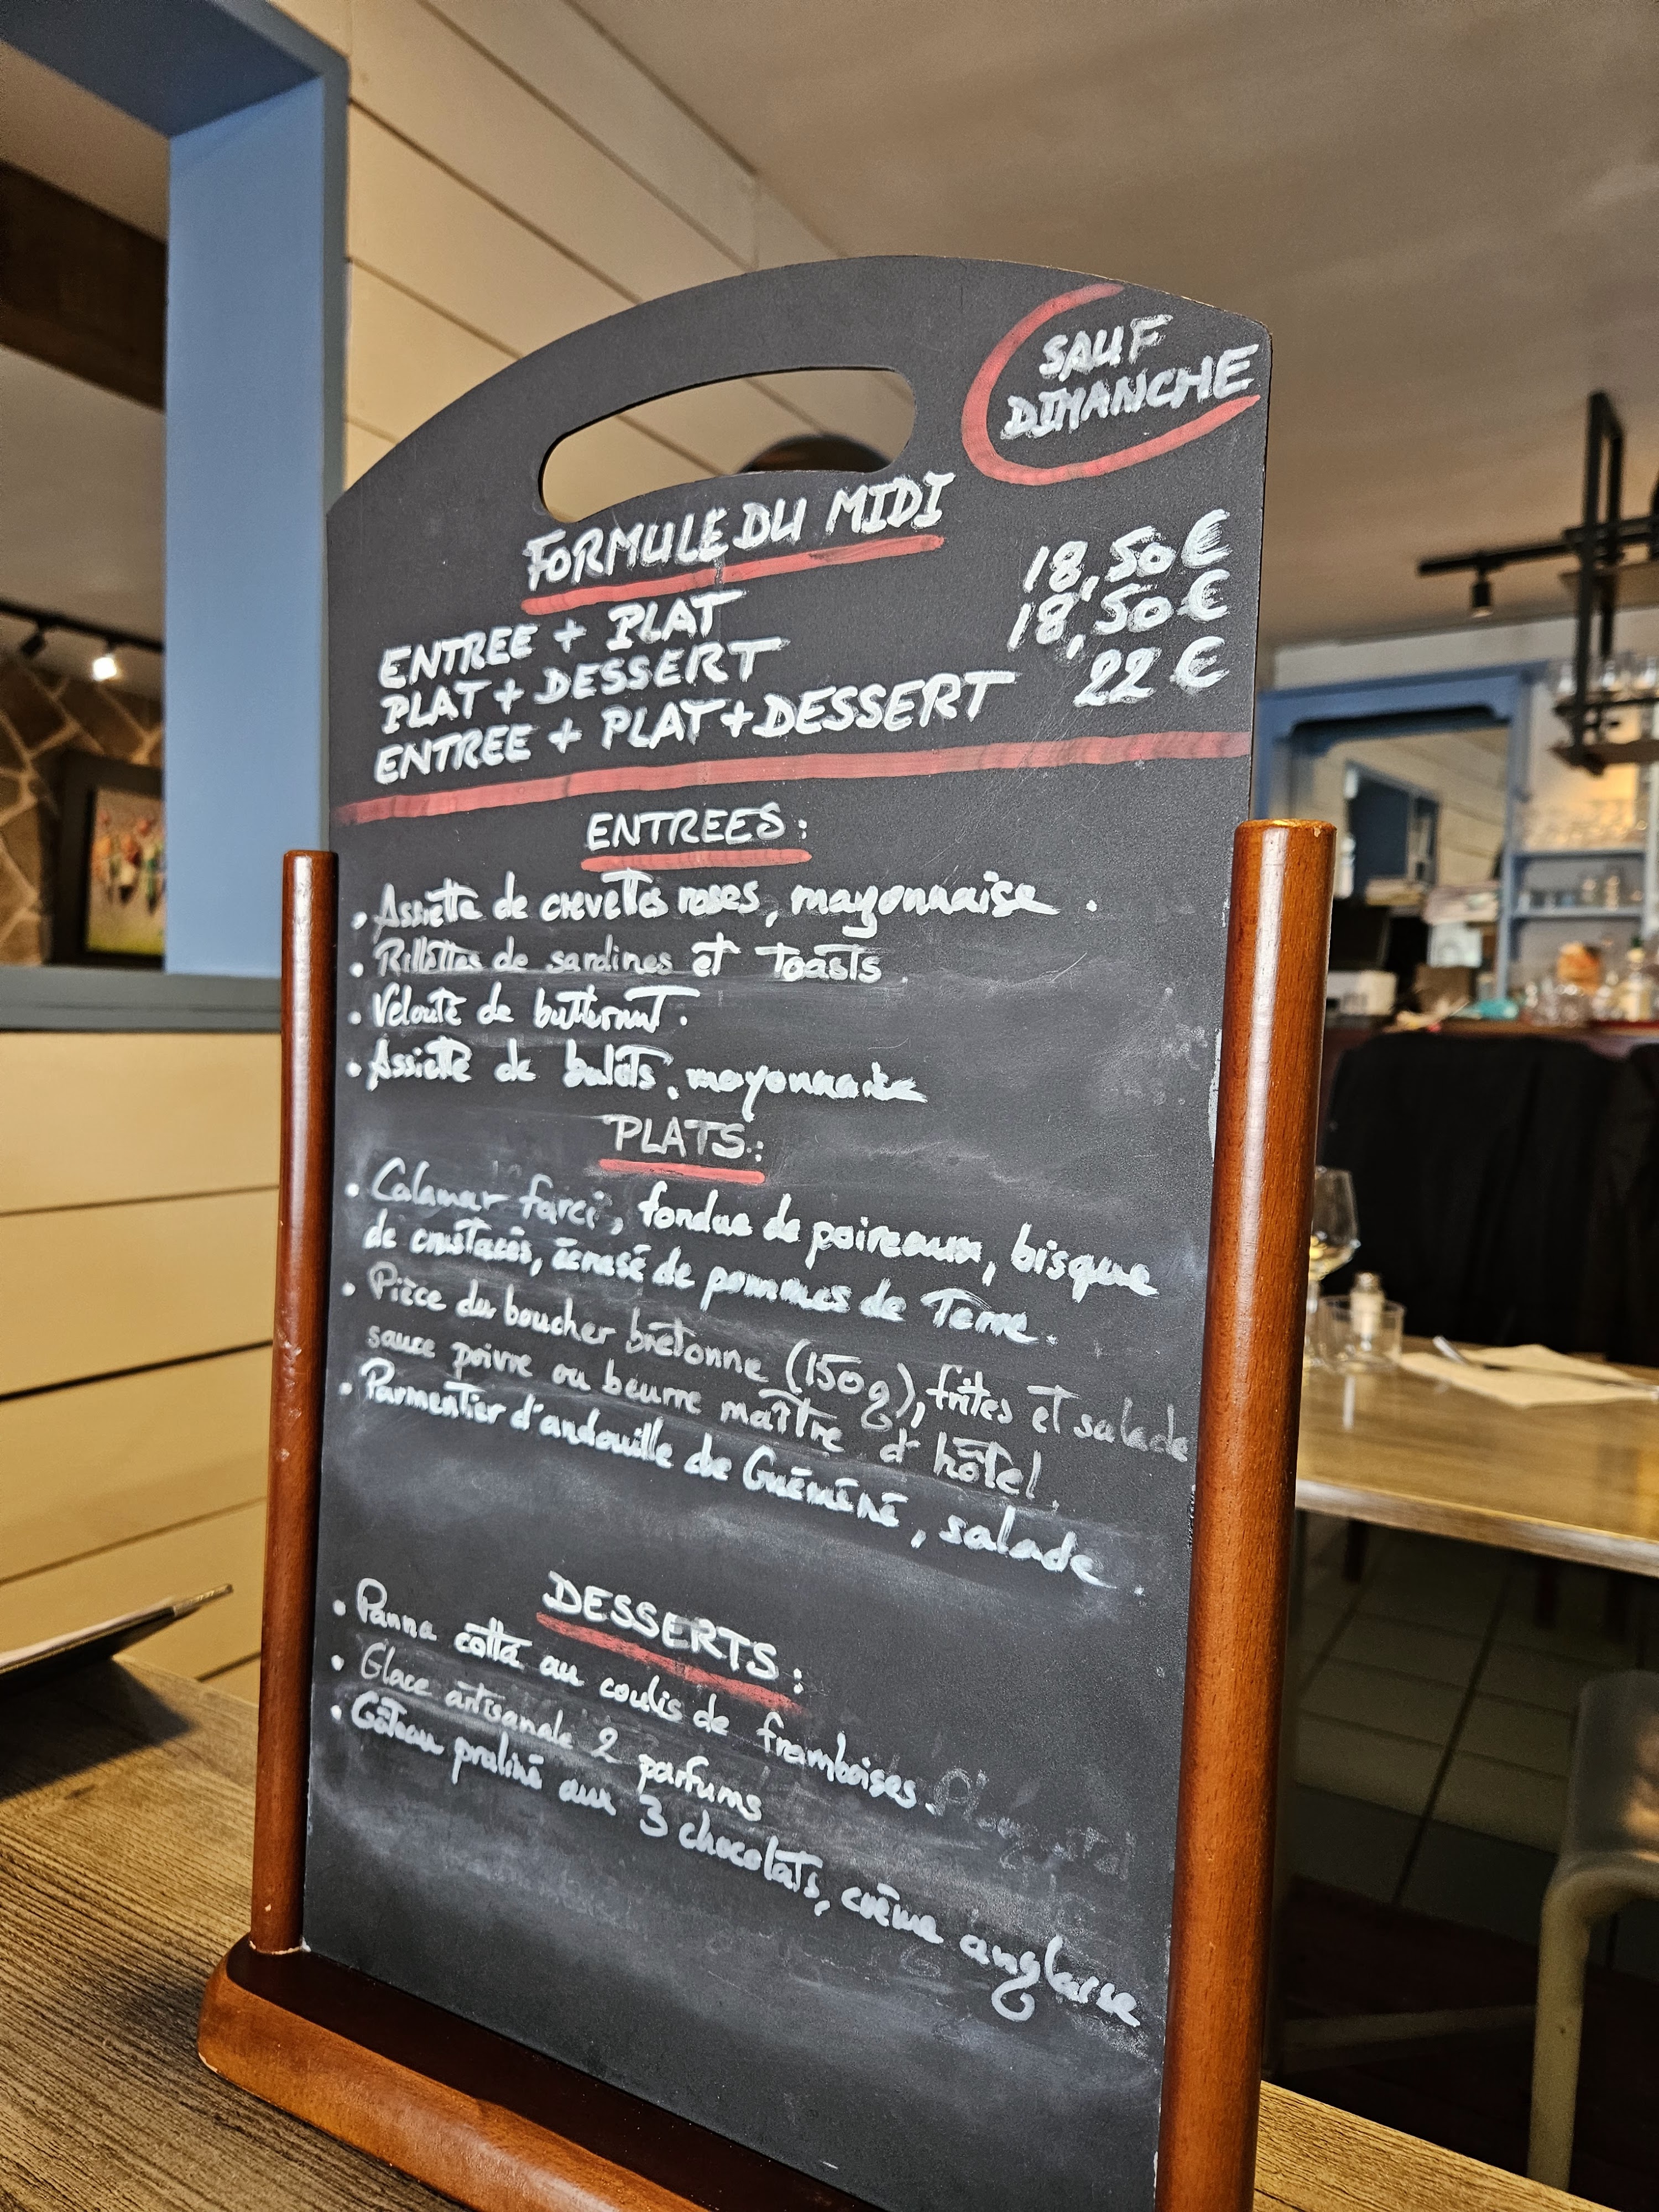 SAUF
DIMANCHE
FORMULE DU MIDI
ENTREE + PLAT 18,50 €
PLAT + DESSERT 18,50 €
ENTREE + PLAT + DESSERT 22 €
ENTREES :
• Assiette de crevettes roses, mayonnaise.
• Rillettes de sardines et toasts.
• Velouté de butternut.
• Assiette de bulots, mayonnaise
PLATS :
• Calamar farci, fondue de poireaux, bisque
de crustacés, écrasé de pommes de terre.
• Pièce du boucher bretonne (150g), frites et salade
sauce poivre ou beurre maître d'hôtel.
• Parmentier d'andouille de Guéméné, salade.
DESSERTS :
• Panna cotta au coulis de framboises.
• Glace artisanale 2 parfums
• Gâteau praliné aux 3 chocolats, crème anglaise